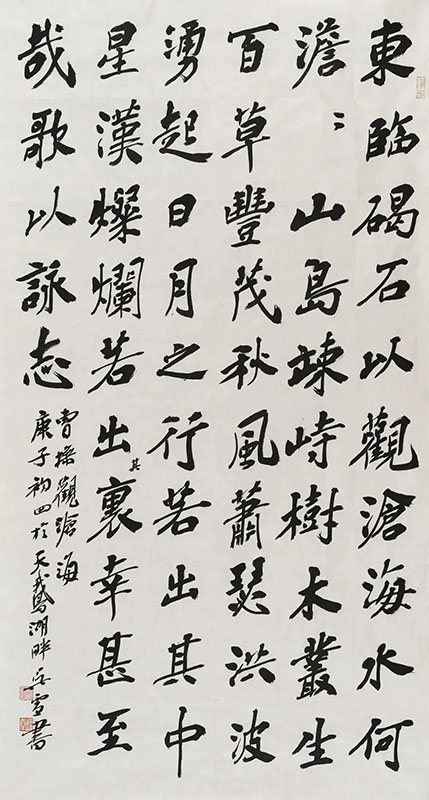 東臨碣石以觀滄海水何
澹〻山島竦峙樹木叢生
百草豐茂秋風蕭瑟洪波
湧起日月之行若出其中
星漢燦爛若出其裏幸甚至
哉歌以詠志
曹操觀滄海
庚子初四於天鵞湖畔雪書